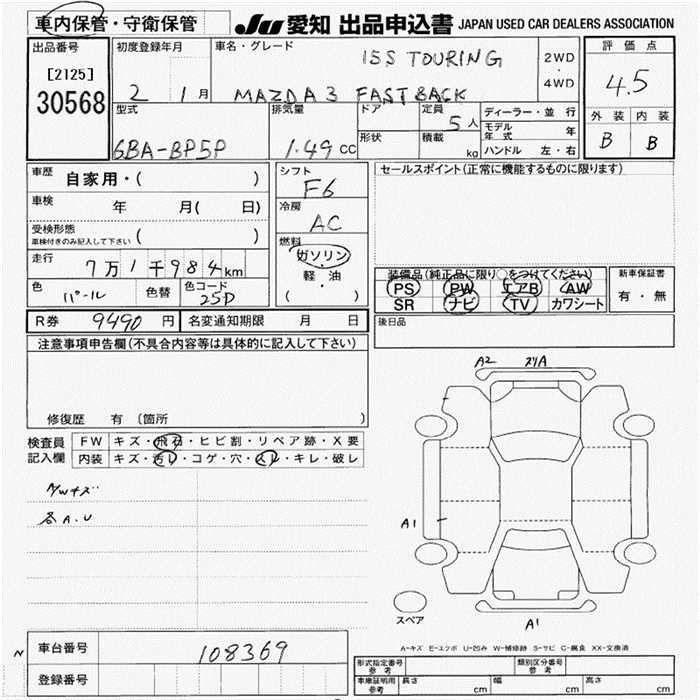 車内保管・守衛保管
JU 愛知 出品申込書 JAPAN USED CAR DEALERS ASSOCIATION
出品番号
[2125]
30568
初度登録年月
2 1月
車名・グレード
15S TOURING
MAZDA3 FASTBACK
2WD
・
4WD
評価点
4.5
外装 内装
B B
型式
6BA-BP5P
排気量
1.49 CC
ドア
形状
定員
5人
積載
kg
ディーラー・並行
モデル年式 年
ハンドル 左・右
車歴
自家用・( )
車検
年 月( 日)
受検形態
車検付きのみ記入して下さい ( )
走行
7万1千984km
色
パール
色替
色コード
25D
シフト
F6
冷房
AC
燃料
ガソリン
・
軽・油
( )
セールスポイント(正常に機能するものに限ります)
装備品(純正品に限り○をつけてください)
PS PW エアB AW
SR ナビ TV カワシート
新車保証書
有・無
後日品
R券 9490円 名変通知期限 月 日
注意事項申告欄(不具合内容等は具体的に記入して下さい)
修復歴 有 〔箇所 〕
検査員
記入欄
FW キズ・飛石・ヒビ割・リペア跡・X要
内装 キズ・汚レ・コゲ・穴・スレ・キレ・破レ
AWキズ
各A.U
A2 スリA
A1
スペア
A1
A-キズ E-エクボ U-凹み W-補修跡 S-サビ C-腐食 XX-交換済
N
車台番号
108369
登録番号
形式指定番号 参考
類別区分番号 参考
車庫証明用 参考
長さ cm
幅 cm
高さ cm